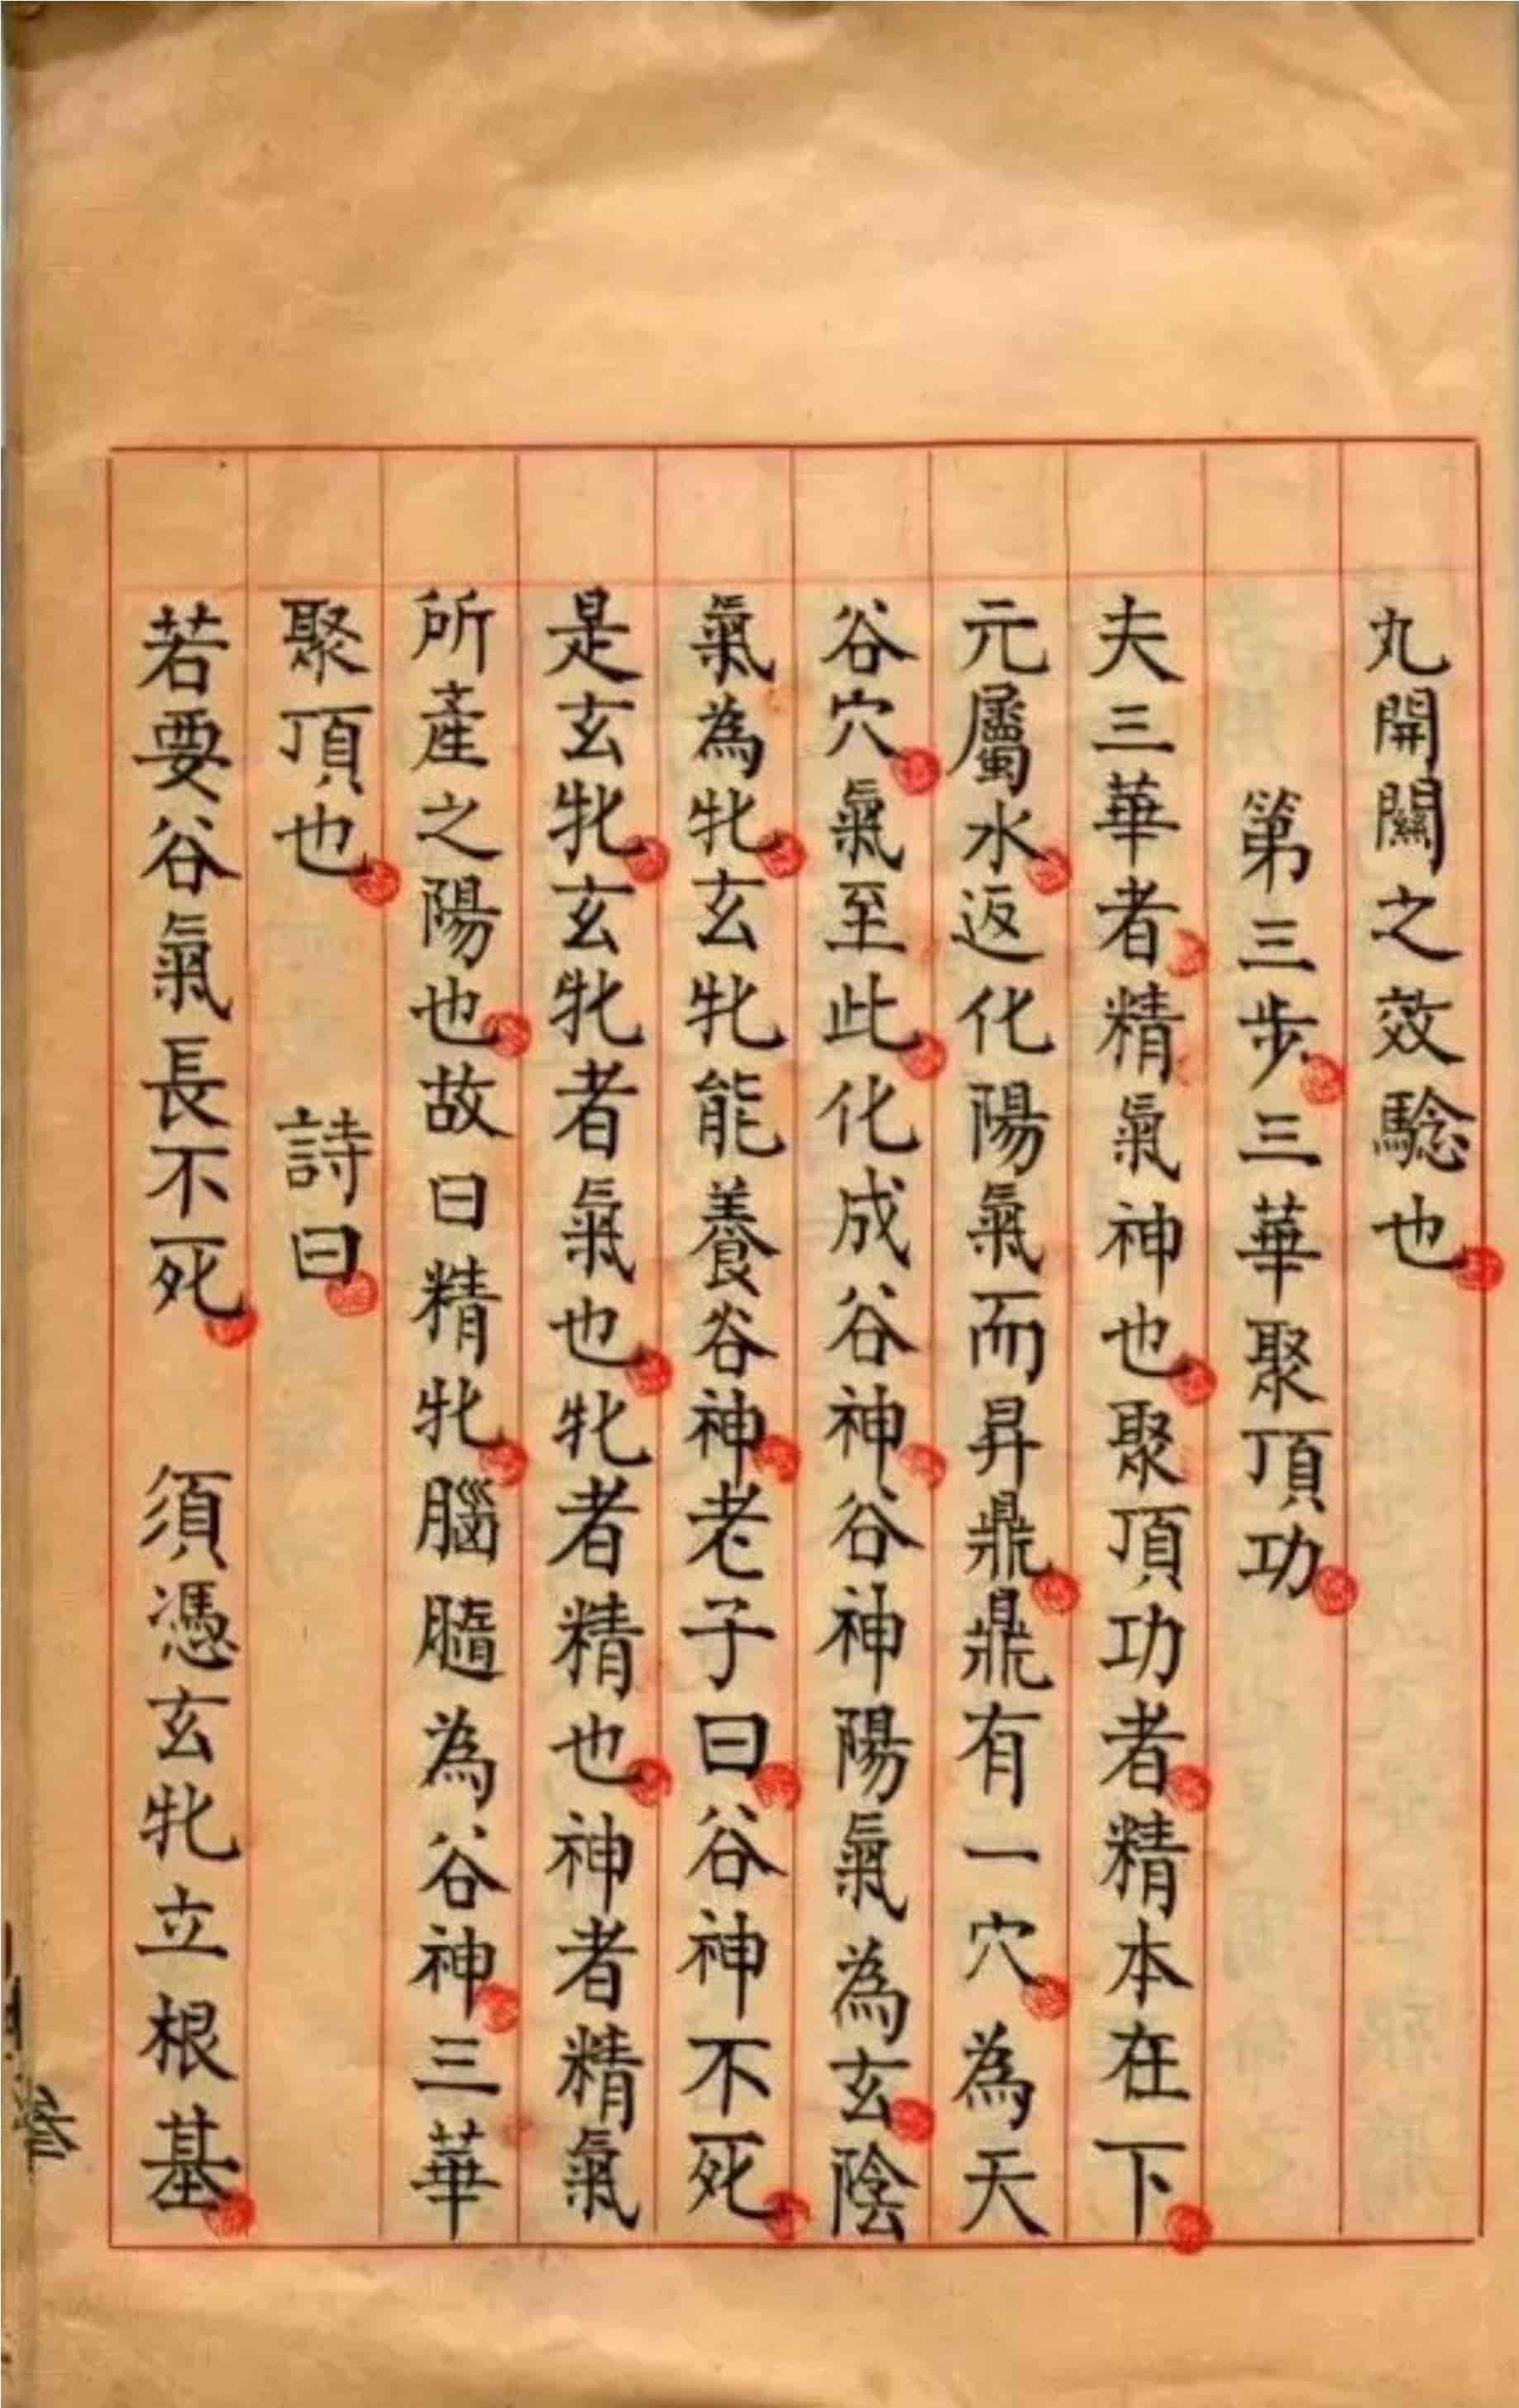 丸開關之效騐也
第三步三華聚頂功
夫三華者精氣神也聚頂功者精本在下
元屬水返化陽氣而昇鼎鼎有一穴為天
谷穴氣至此化成谷神谷神陽氣為玄陰
氣為牝玄牝能養谷神老子曰谷神不死
是玄牝玄牝者氣也牝者精也神者精氣
所產之陽也故曰精牝腦髓為谷神三華
聚頂也 詩曰
若要谷氣長不死 須憑玄牝立根基